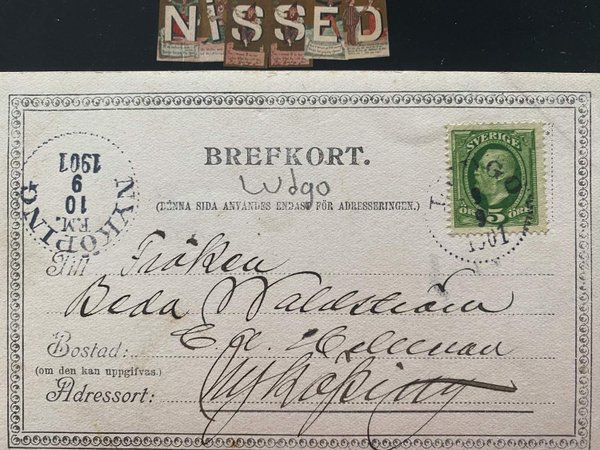 NISSED
BREFKORT.
(DENNA SIDA ANVÄNDES ENDAST FÖR ADRESSERINGEN.)
SVERIGE
ÖRE 5 ÖRE
1901
NYKÖPING
F.M.
10
9
1901
Till Fröken
Beda Waldström
Bostad:
(om den kan uppgifvas.)
Adressort: Nyköping